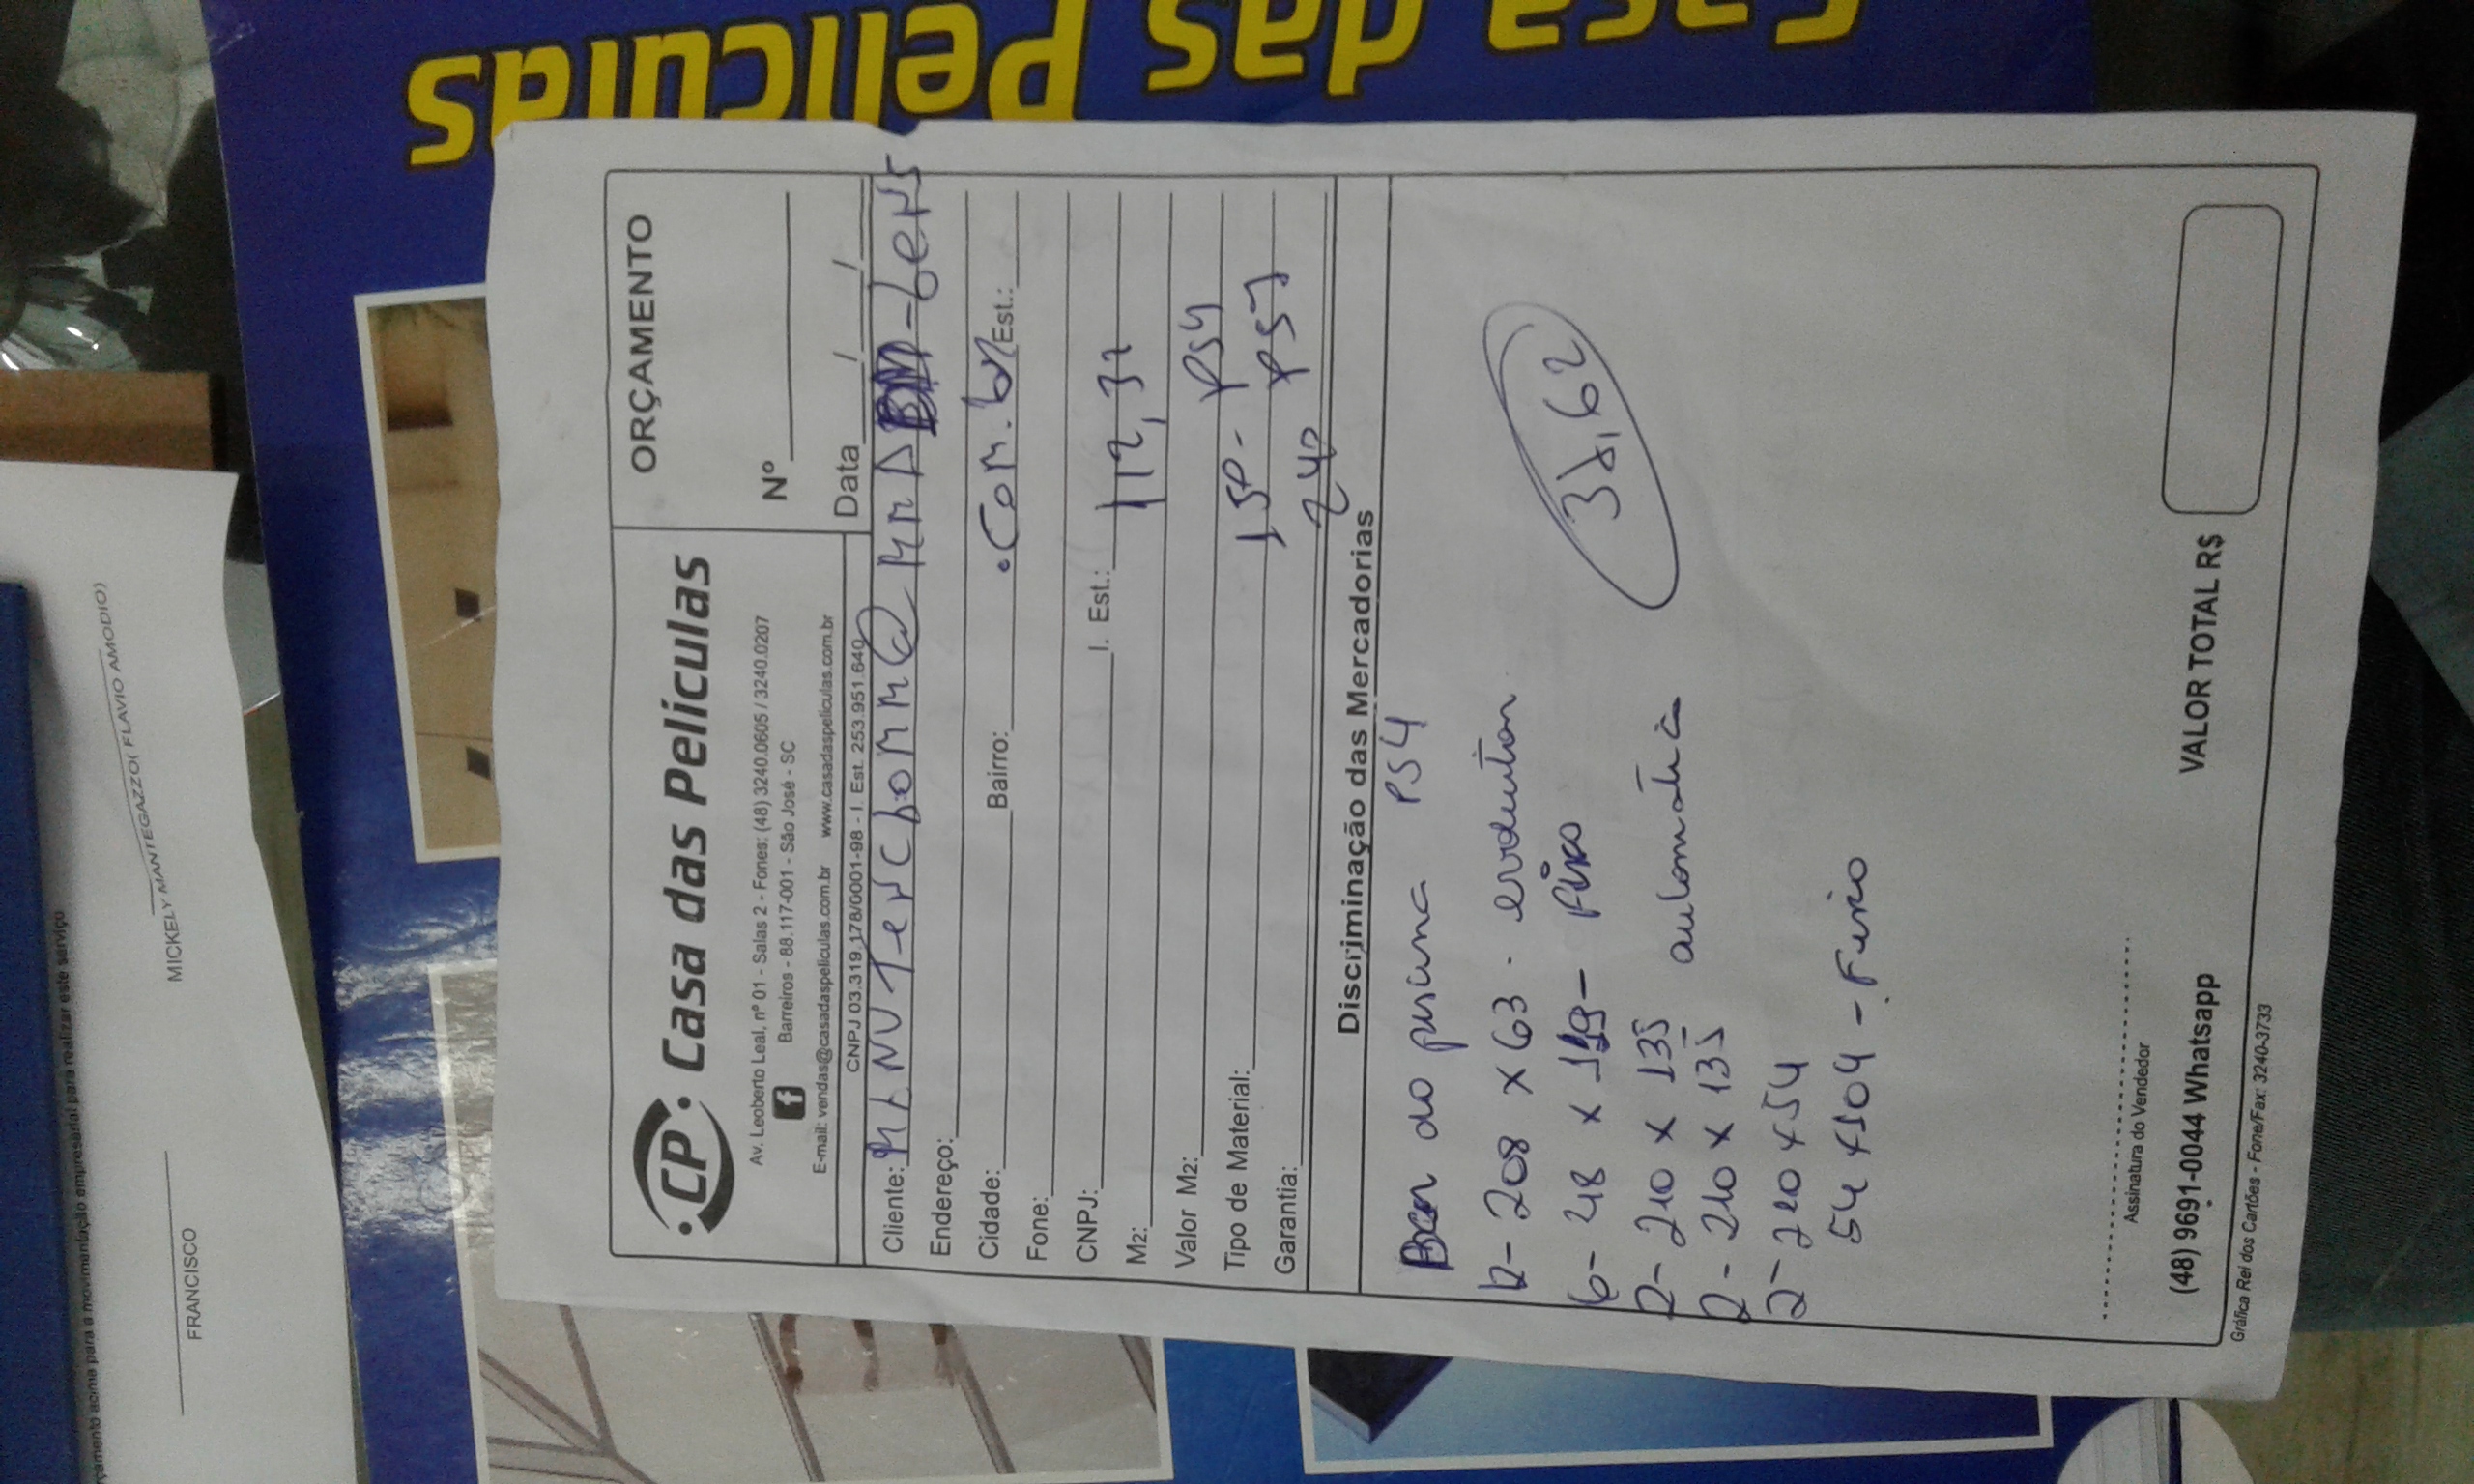 Casa das Películas
orçamento acima para a movimentação empresarial para realizar este serviço
FRANCISCO
MICKELY MANTEGAZZO( FLAVIO AMODIO)
CP
Casa das Películas
Av. Leoberto Leal, nº 01 - Salas 2 - Fones: (48) 3240.0605 / 3240.0207
Barreiros - 88.117-001 - São José - SC
E-mail: vendas@casadaspeliculas.com.br www.casadaspeliculas.com.br
CNPJ 03.319.178/0001-98 - I. Est. 253.951.640
ORÇAMENTO
Nº
Data / /
Cliente:
Endereço:
Cidade: Bairro: .com.br Est.:
Fone:
CNPJ: I. Est.: 112,37
M2:
Valor M2: PS4
Tipo de Material: 150 - PS7
Garantia: 240
Discriminação das Mercadorias
do PS4
2- 208 x 63 -
6- 48 x 119 - Fixo
2- 210 x 135
2- 210 x 135 automática
2- 210 x 54
54 x 104 - Fixo
38,62
Assinatura do Vendedor
(48) 9691-0044 Whatsapp VALOR TOTAL R$
Gráfica Rei dos Cartões - Fone/Fax: 3240-3733